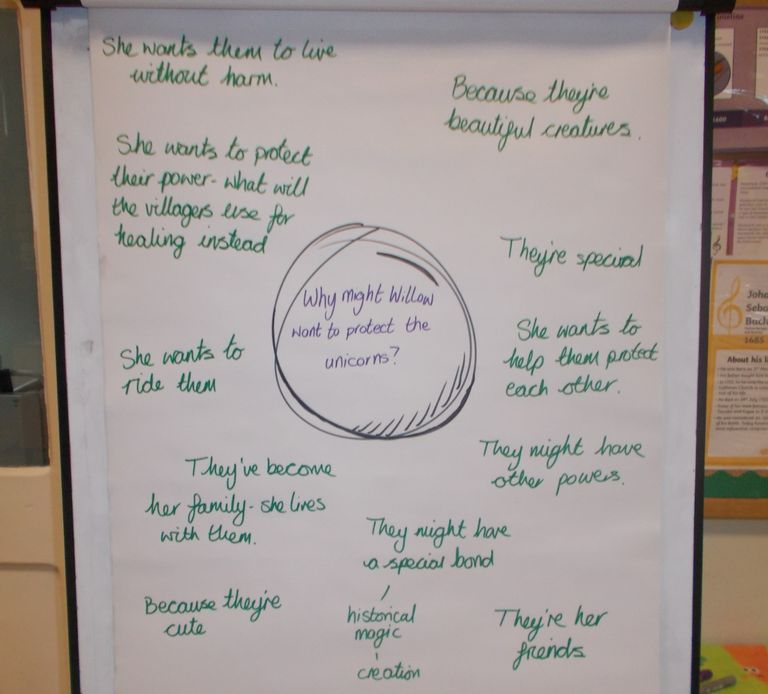 She wants them to live
without harm.
Because they're
beautiful creatures.
She wants to protect
their power - what will
the villagers use for
healing instead
They're special
Why might Willow
want to protect the
unicorns?
She wants to
help them protect
each other.
She wants to
ride them
They might have
other powers.
They've become
her family - she lives
with them.
They might have
a special bond
historical
magic
creation
Because they're
cute
They're her
friends
Seba
Bach
1685
About his li